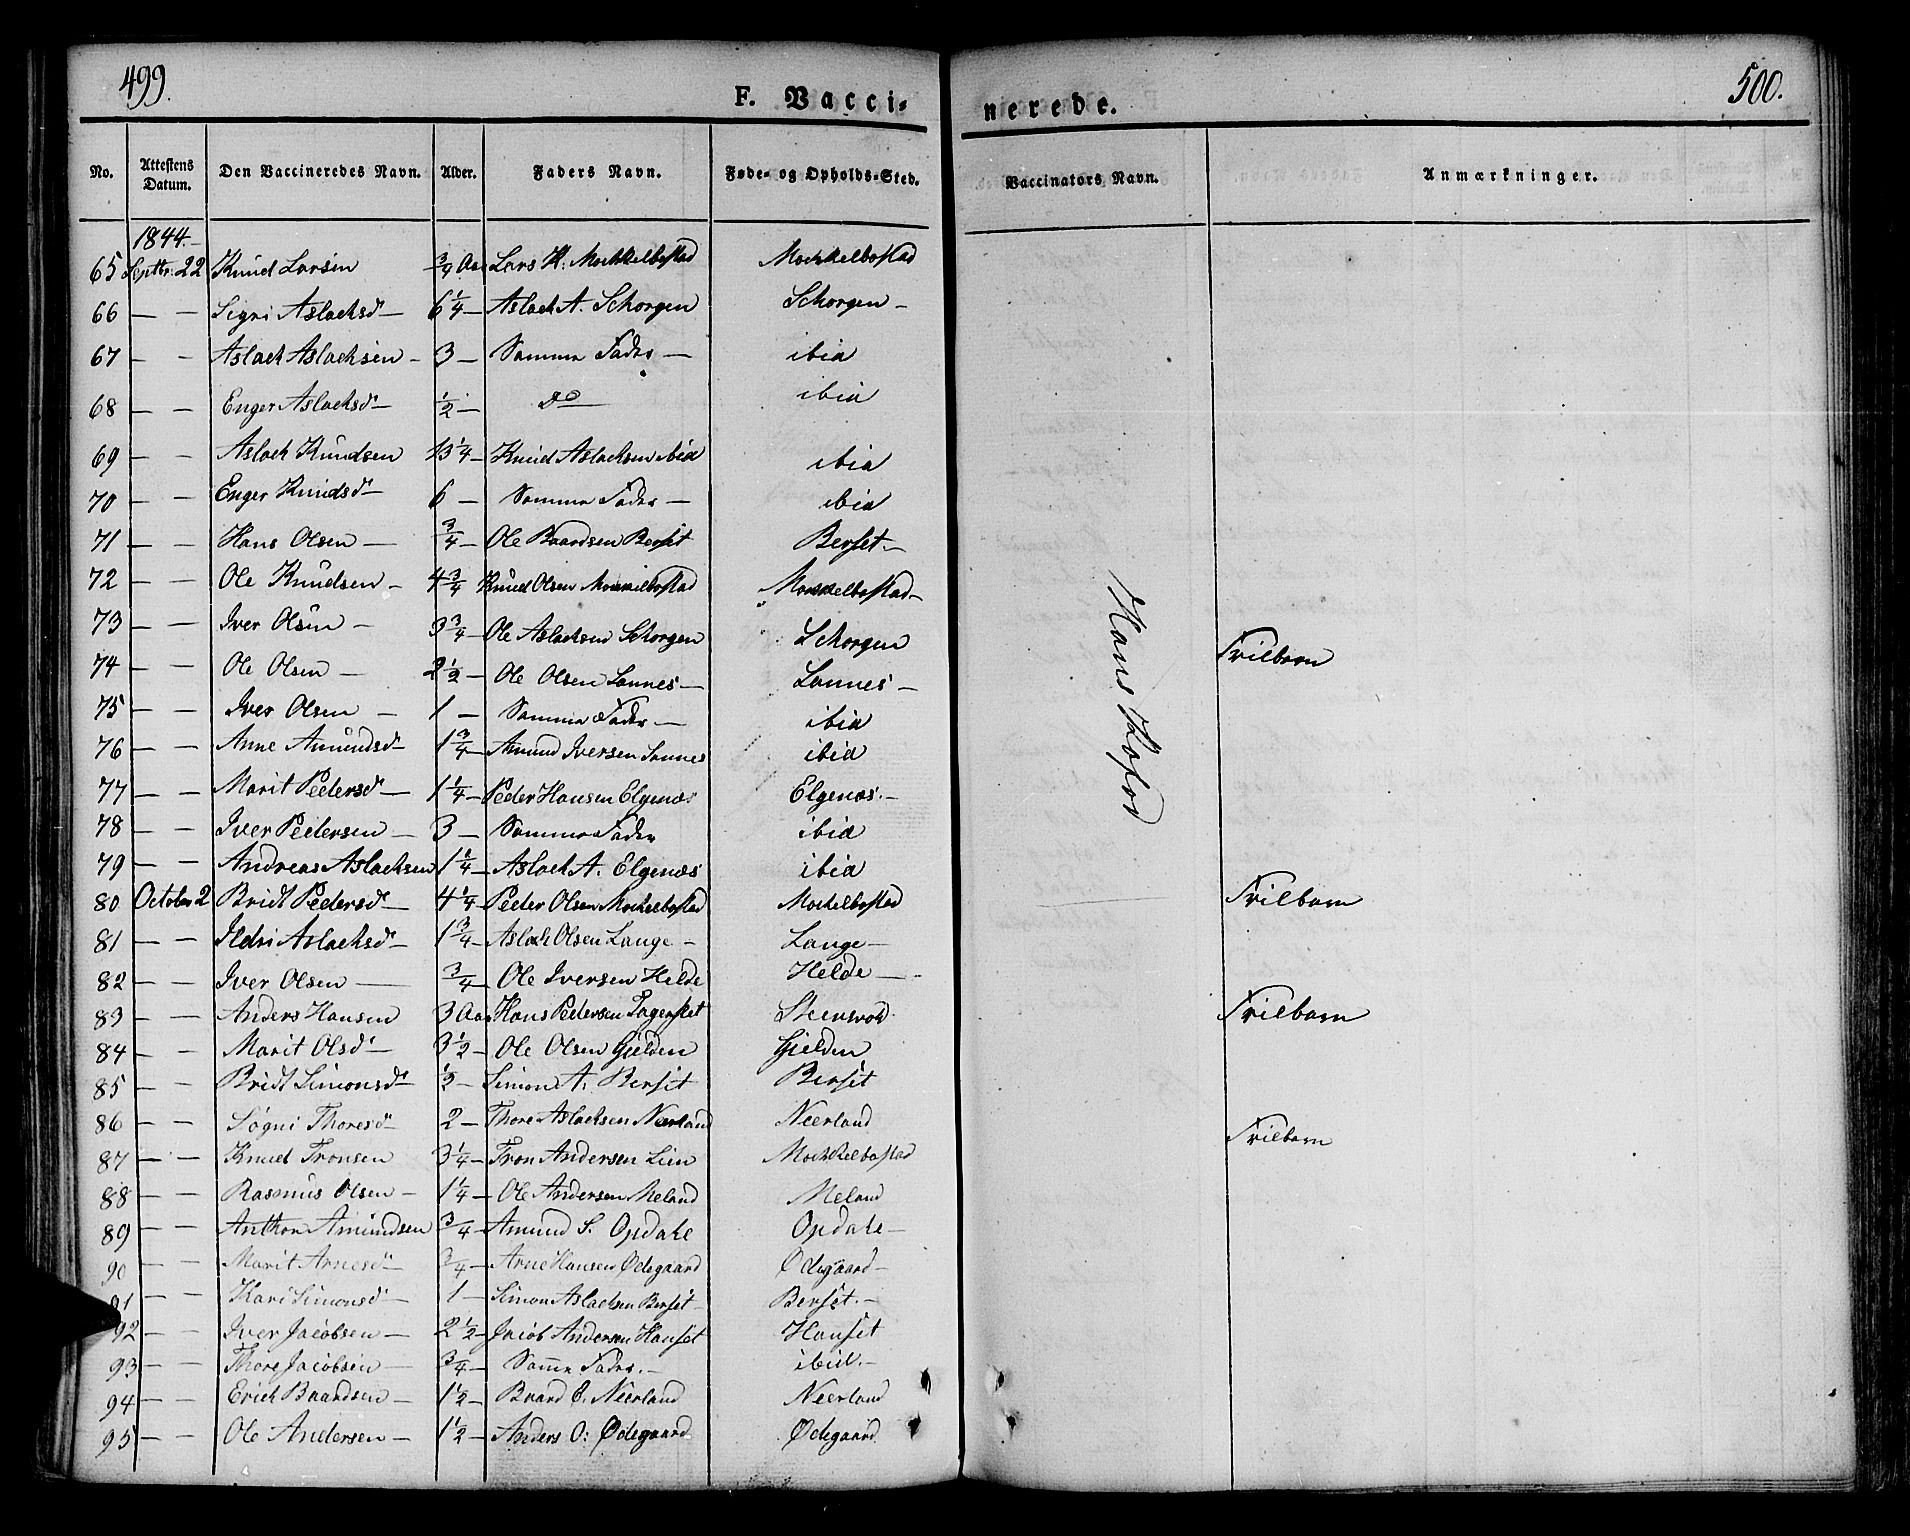 499.
F. Vacci-
nerede.
500.
No. Attestens Datum. Den Vaccineredes Navn. Alder. Faders Navn. Føde- og Opholds-Sted. Vaccinators Navn. Anmærkninger.
1844.
65 Septbr. 22 Knud Larsen 3/4 Aar Lars K. Mochkelbostad Mochkelbostad
66 — — Sigri Aslachsd — 6 1/4 — Aslach A. Schorgen Schorgen —
67 — — Aslach Aslachsen — 3 — Samme Fader — ibid
68 — — Enger Aslachsd — 1/2 — do — ibid
69 — — Aslach Knudsen 13 1/4 — Knud Aslachsen ibid ibid
70 — — Enger Knudsd — 6 — Samme Fader — ibid
71 — — Hans Olsen — 3/4 — Ole Baardsen Berset Berset. —
72 — — Ole Knudsen — 4 3/4 Knud Olsen Mochkelbostad Mochkelbostad —
73 — — Iver Olsen — 3 3/4 — Ole Aslachsen Schorgen Schorgen
74 — — Ole Olsen — 2 1/2 — Ole Olsen Lannes — Lannes — Frilbarn
75 — — Iver Olsen — 1 — Samme Fader — ibid
76 — — Anne Amundsd — 1 3/4 — Amund Iversen Lannes ibid
77 — — Marit Pedersd — 1 1/4 — Peder Hansen Elgenæs Elgenæs. —
78 — — Iver Pedersen — 3 — Samme Fader ibid
79 — — Andreas Aslachsen 1 1/4 — Aslach A. Elgenæs ibid
80 October 2 Bridt Pedersd — 4 1/4 — Peder Olsen Mochelbostad Mochelbostad Frilbarn
81 — — Ildri Aslachsd — 1 3/4 — Aslach Olsen Lange — Lange —
82 — — Iver Olsen — 3/4 — Ole Iversen Helde Helde —
83 — — Anders Hansen 3 Aar Hans Pedersen Frilbarn
84 — — Marit Olsd — 3 1/2 — Ole Olsen Gjelden Gjelden
85 — — Bridt Simonsd — 1/2 — Simon A. Berset Berset
86 — — Søgni Thoresd — 2 — Thore Aslachsen Neerland Neerland
87 — — Knud Tronsen 3 1/4 — Tron Andersen Lien Mochkelbostad Frilbarn
88 — — Rasmus Olsen — 1 1/4 — Ole Andersen Meland Meland
89 — — Anthon Amundsen 3/4 — Amund S. Opdale Opdale —
90 — — Marit Arnesd — 3/4 — Arne Hansen Ødegaard Ødegaard —
91 — — Kari Simonsd — 1 — Simon Aslachsen Berset — Berset. —
92 — — Iver Jacobsen — 2 1/2 — Jacob Andersen Hauset Hauset
93 — — Thore Jacobsen — 3/4 — Samme Fader. — ibid. —
94 — — Erich Baardsen — 1 1/2 — Baard E. Neerland Neerland
95 — — Ole Andersen — 1 1/2 — Anders O: Ødegaard Ødegaard
Hans